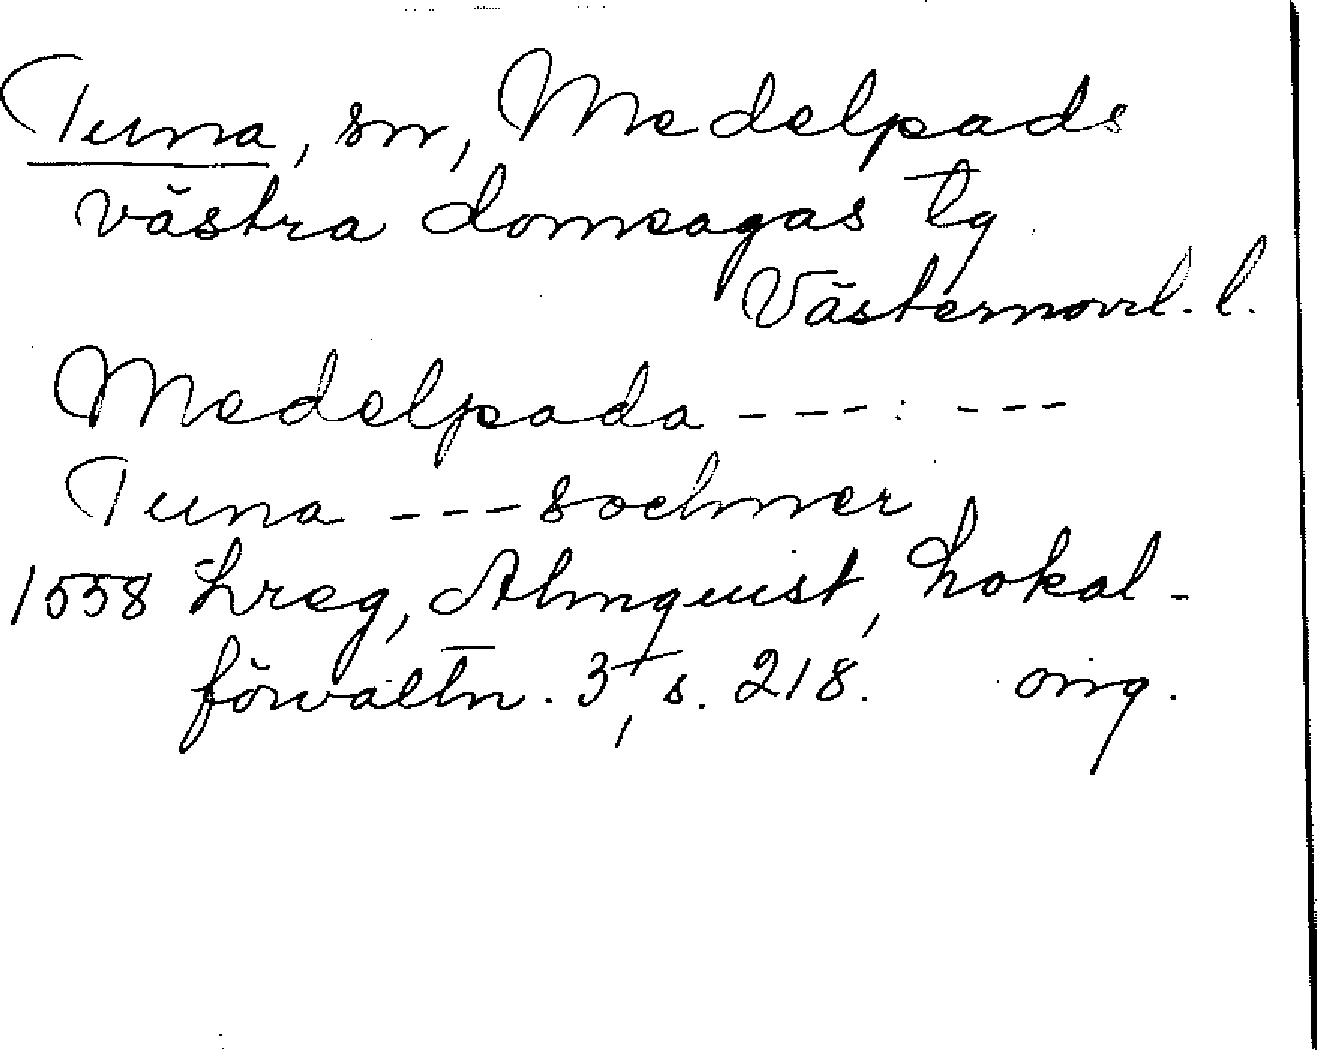 Tuna, sn, Medelpads
västra domsagas tg
Västernorrl. l.
Medelpada ---: ---
Tuna --- sochner
1558 Lreg, Almquist, Lokal-
förvaltn. 3, s. 218. orig.